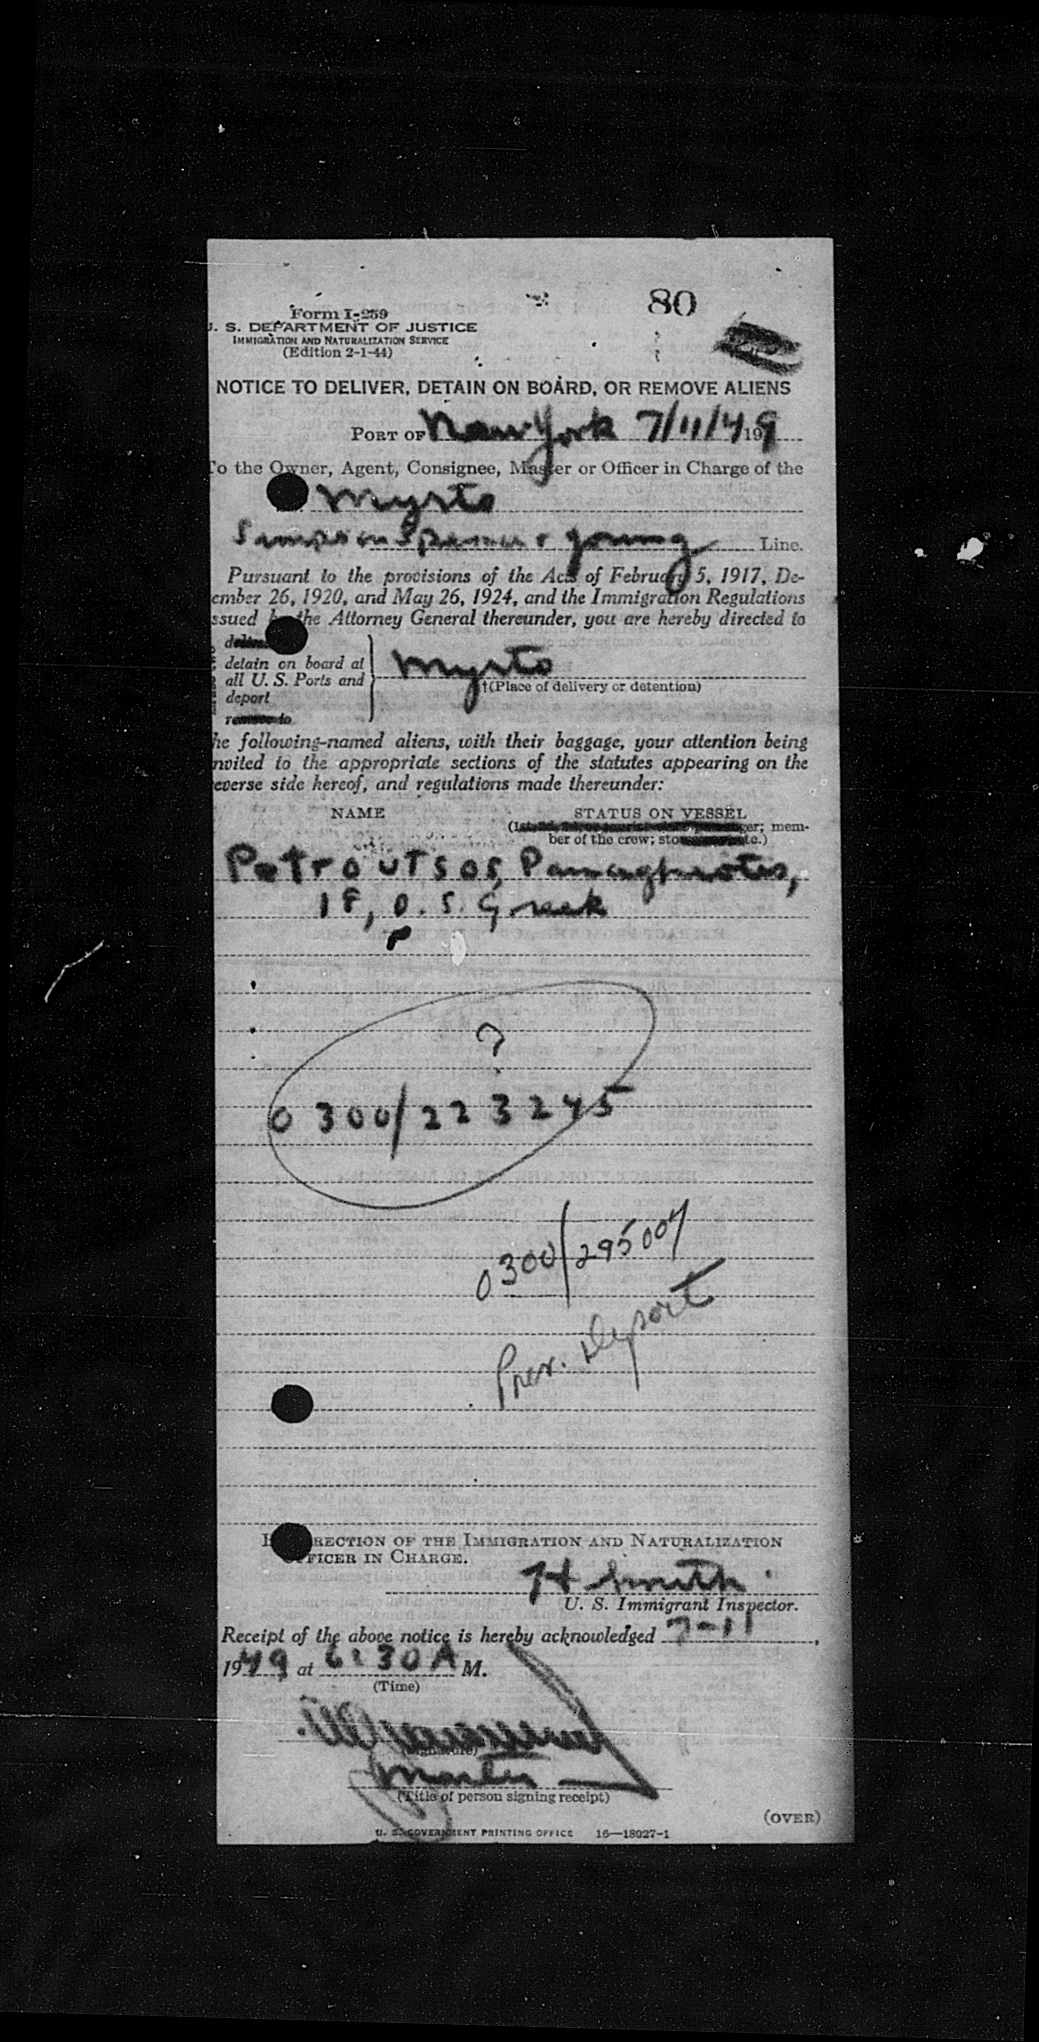 80
Form I-259
U. S. DEPARTMENT OF JUSTICE
IMMIGRATION AND NATURALIZATION SERVICE
(Edition 2-1-44)
NOTICE TO DELIVER, DETAIN ON BOARD, OR REMOVE ALIENS
PORT OF New York 7/11/4 199
To the Owner, Agent, Consignee, Master or Officer in Charge of the
Myrto
Simpson Spence & Young Line.
Pursuant to the provisions of the Acts of February 5, 1917, De-
cember 26, 1920, and May 26, 1924, and the Immigration Regulations
issued by the Attorney General thereunder, you are hereby directed to
deliver
detain on board at
all U. S. Ports and
deport
remove to
Myrto
†(Place of delivery or detention)
the following-named aliens, with their baggage, your attention being
invited to the appropriate sections of the statutes appearing on the
reverse side hereof, and regulations made thereunder:
NAME STATUS ON VESSEL
mem-
ber of the crew;
Petroutsos,
18, O. S. Greek
?
0300/223245
0300/295004
Prev. Deport
BY DIRECTION OF THE IMMIGRATION AND NATURALIZATION
OFFICER IN CHARGE.
H Smith
U. S. Immigrant Inspector.
Receipt of the above notice is hereby acknowledged 7-11,
1949 at 6:30 A M.
(Time)
(Signature)
Master
(Title of person signing receipt)
(OVER)
U. S. GOVERNMENT PRINTING OFFICE 16—18027-1